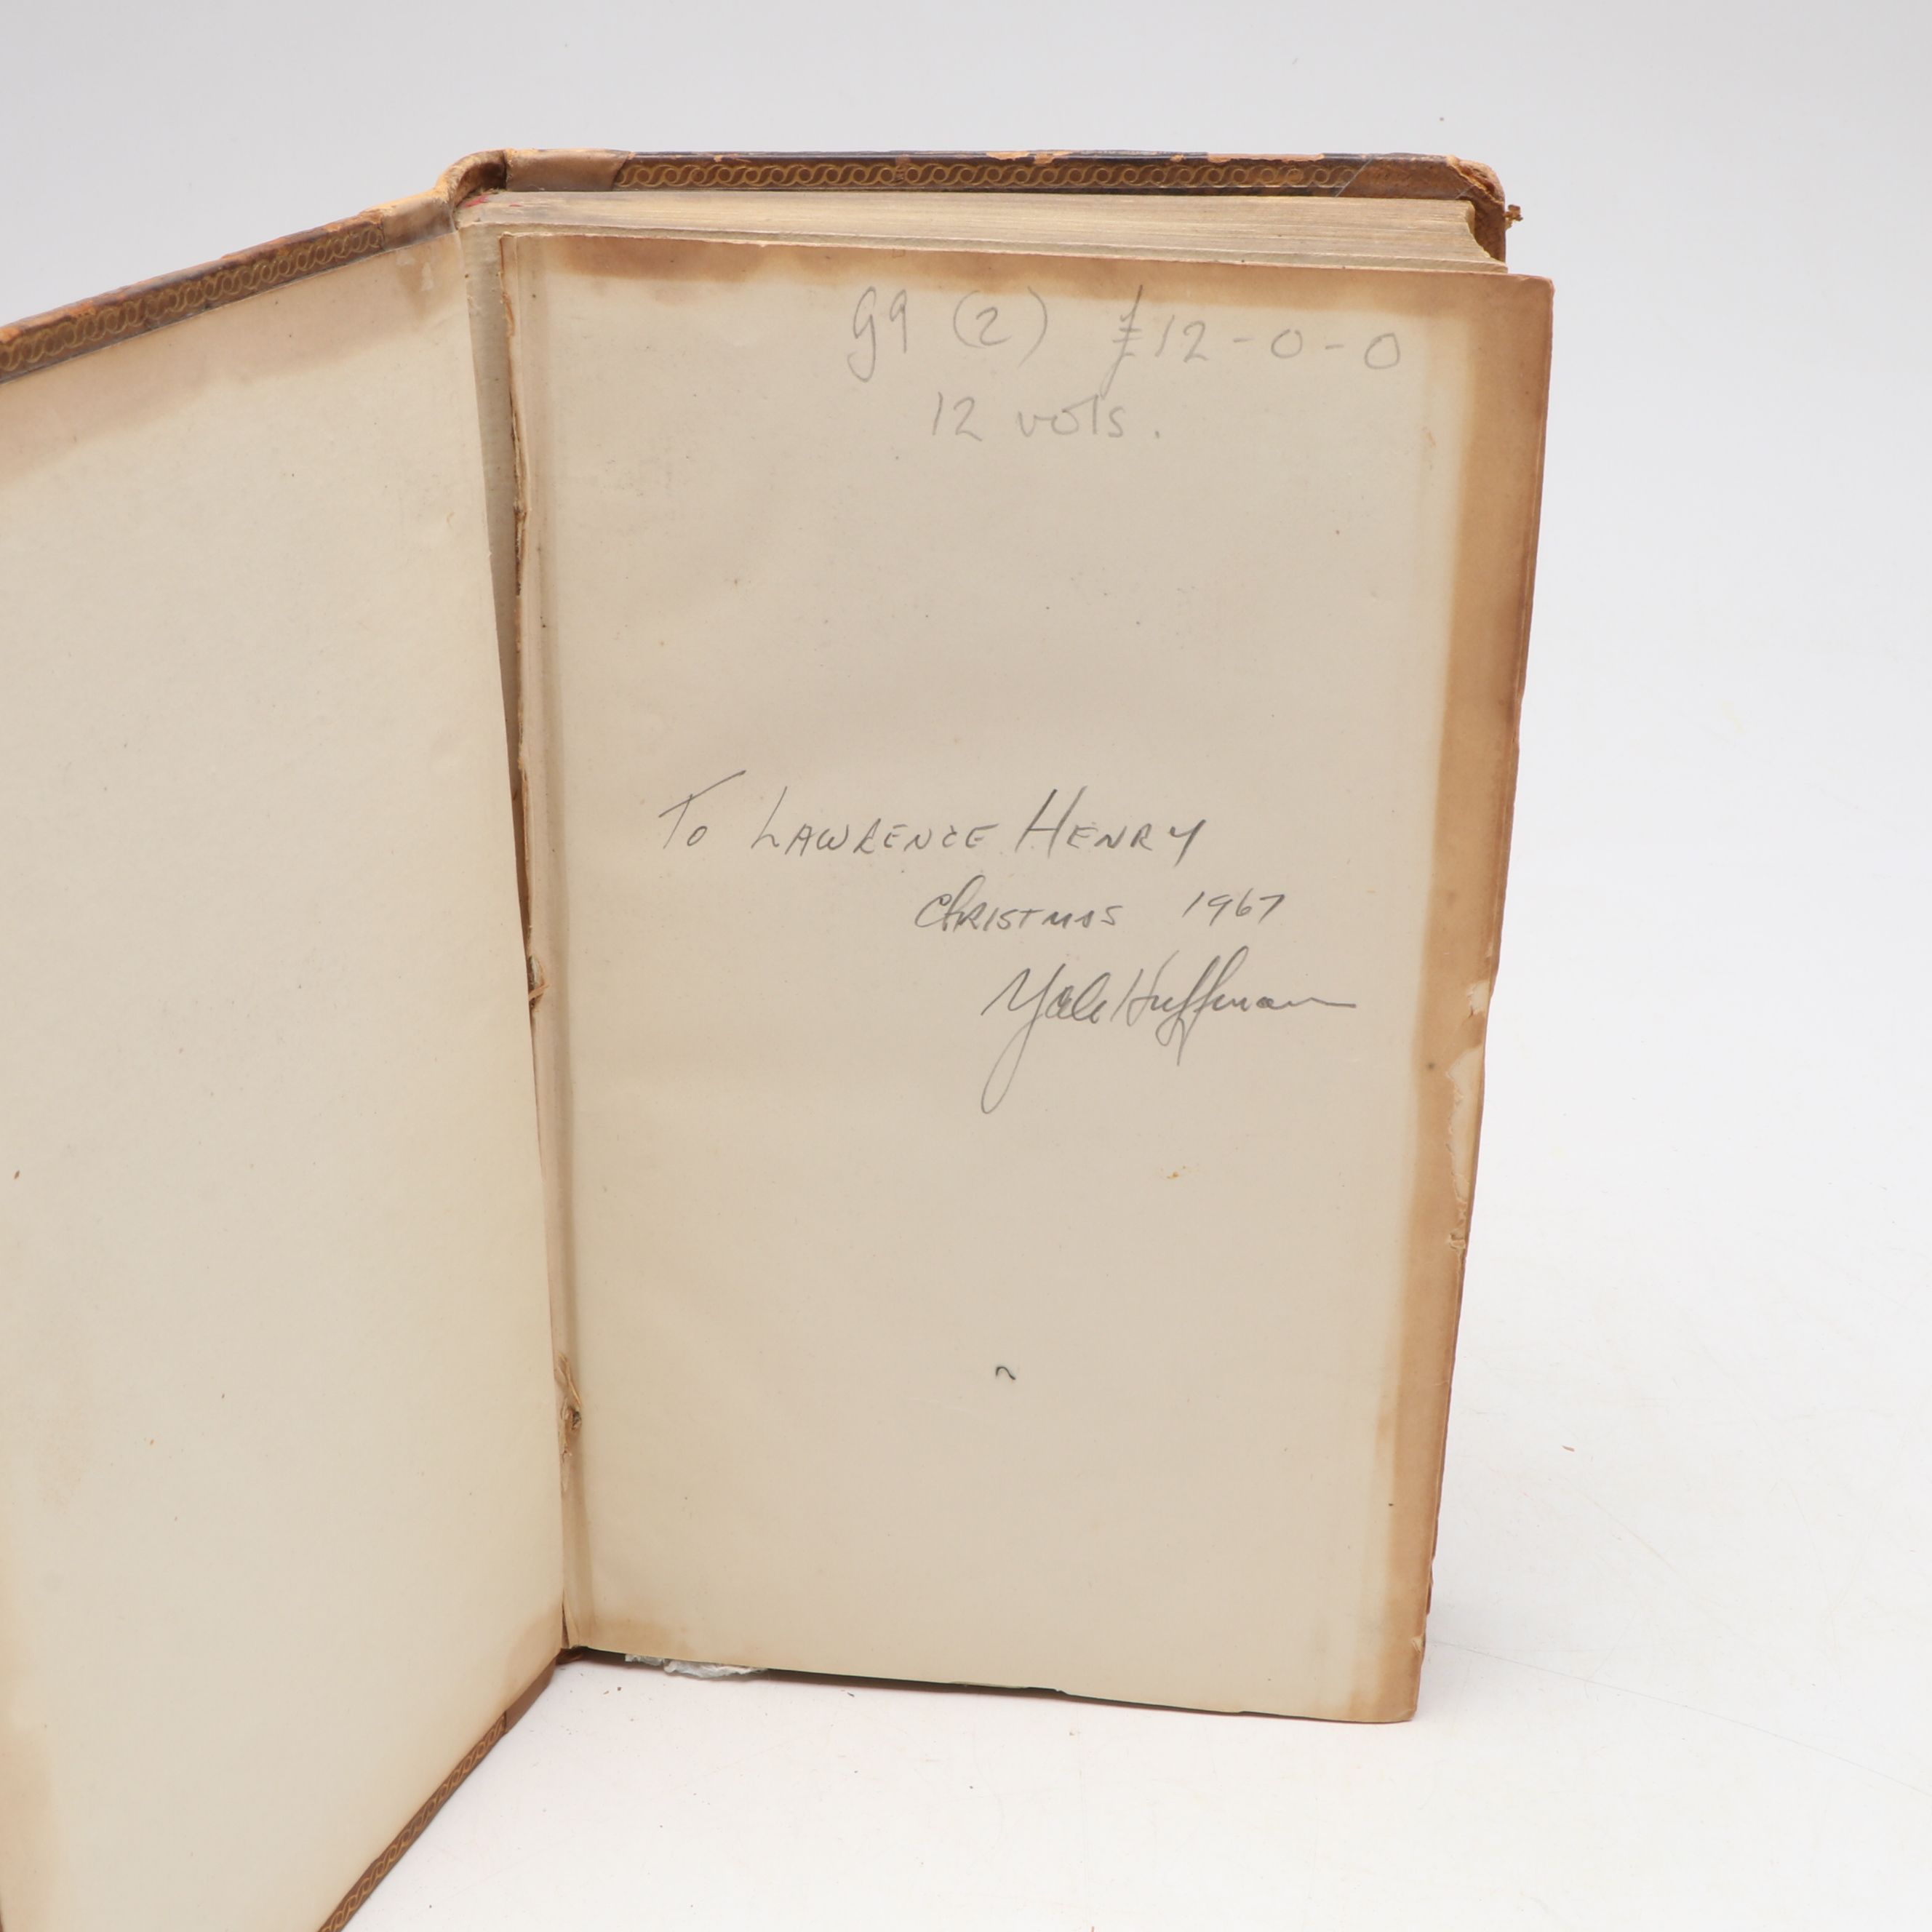 g9 (2) £12-0-0
12 vols.
To LAWRENCE HENRY
CHRISTMAS 1967
Yale Huffman